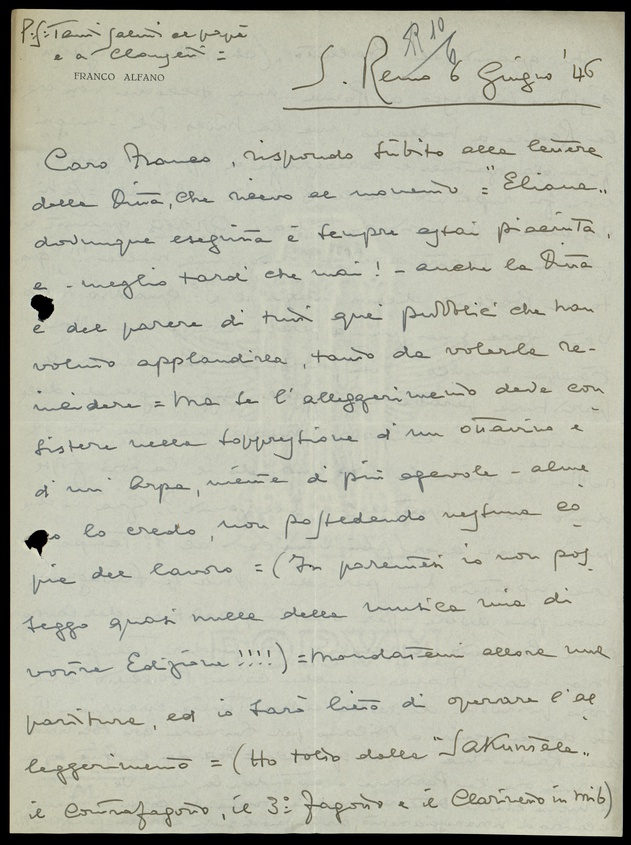 P.S: Tanti saluti al papà
e a Clausetti =
FRANCO ALFANO
R 10/6
S. Remo 6 Giugno '46
Caro Franco, rispondo subito alla lettera
della Ditta, che ricevo al momento = "Eliana"
dovunque eseguita è sempre assai piaciuta,
e - meglio tardi che mai! - anche la Ditta
è del parere di tutti quei pubblici che han
voluto applaudirla, tanto da volerla re-
incidere = Ma se l'alleggerimento deve con
sistere nella soppressione di un ottavino e
di un'Arpa, niente di più agevole - alme
no lo credo, non possedendo nessuna co
pia del lavoro = (In parentesi io non pos_
seggo quasi nulla della musica mia di
vostra Edizione !!!!) = Mandatemi allora una
partitura, ed io sarò lieto di operare l'al
leggerimento = (Ho tolto dalla "Sakuntala"
il Contrafagotto, il 3º: fagotto e il Clarinetto in mib)